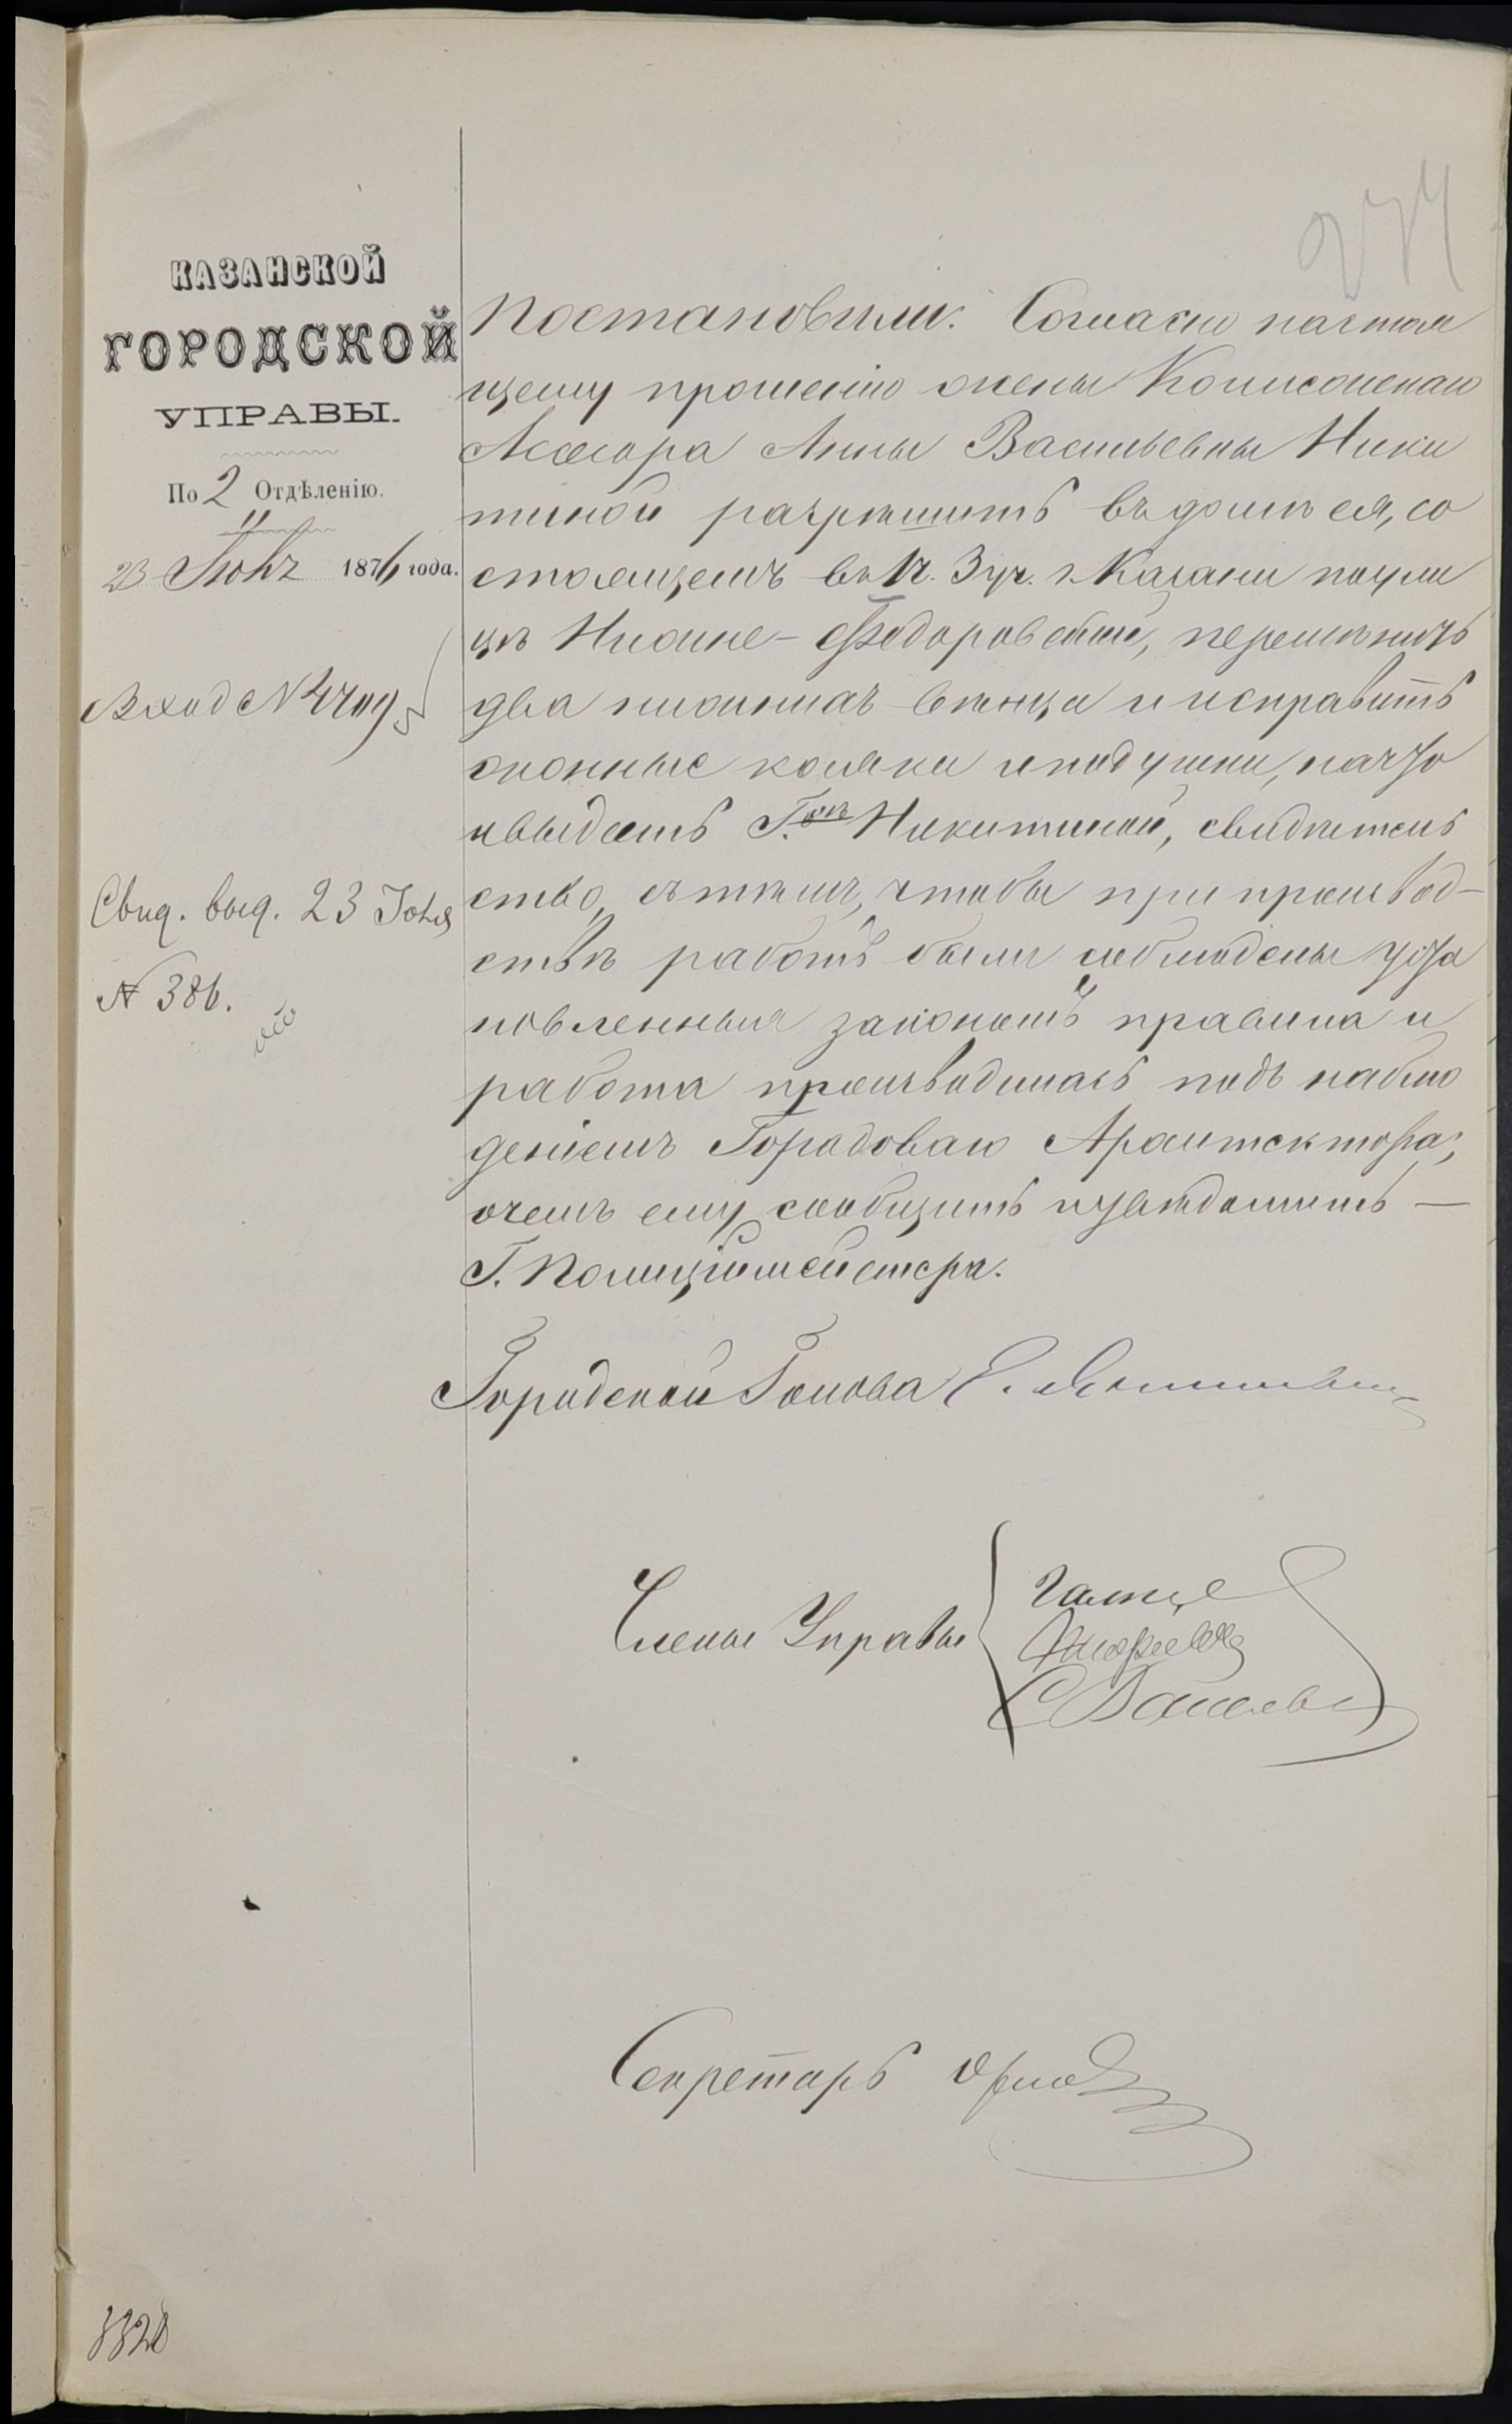 274
КАЗАНСКОЙ
ГОРОДСКОЙ
УПРАВЫ.
По 2 Отдѣленію.
23 Іюня 1876 года.
Вход №
Свид. выд. 23 Іюня
№ 386.
Постановили: Согласно настоя
щему прошенію жены Колежскаго
Асесора Анны Васильевны Ники
тиной разрѣшить въ домѣ ея, со
стоящемъ въ 1 ч. 3 уч. г. Казани по ули
цѣ Нижне-Ѳедоровской, перемѣнить
два нижнихъ вѣнца и исправить
оконные косяки и подушки, на что
и выдать Г.жѣ Никитиной, свидѣтель
ство, съ тѣмъ, чтобы при производ-
ствѣ работъ были соблюдены уста
новленныя закономъ правила и
работа производилась подъ наблю
деніемъ Городоваго Архитектора,
о чемъ ему сообщить и увѣдомить —
Г. Полиціймейстера.
Городской Голова
Члены Управы
Секретарь
3320